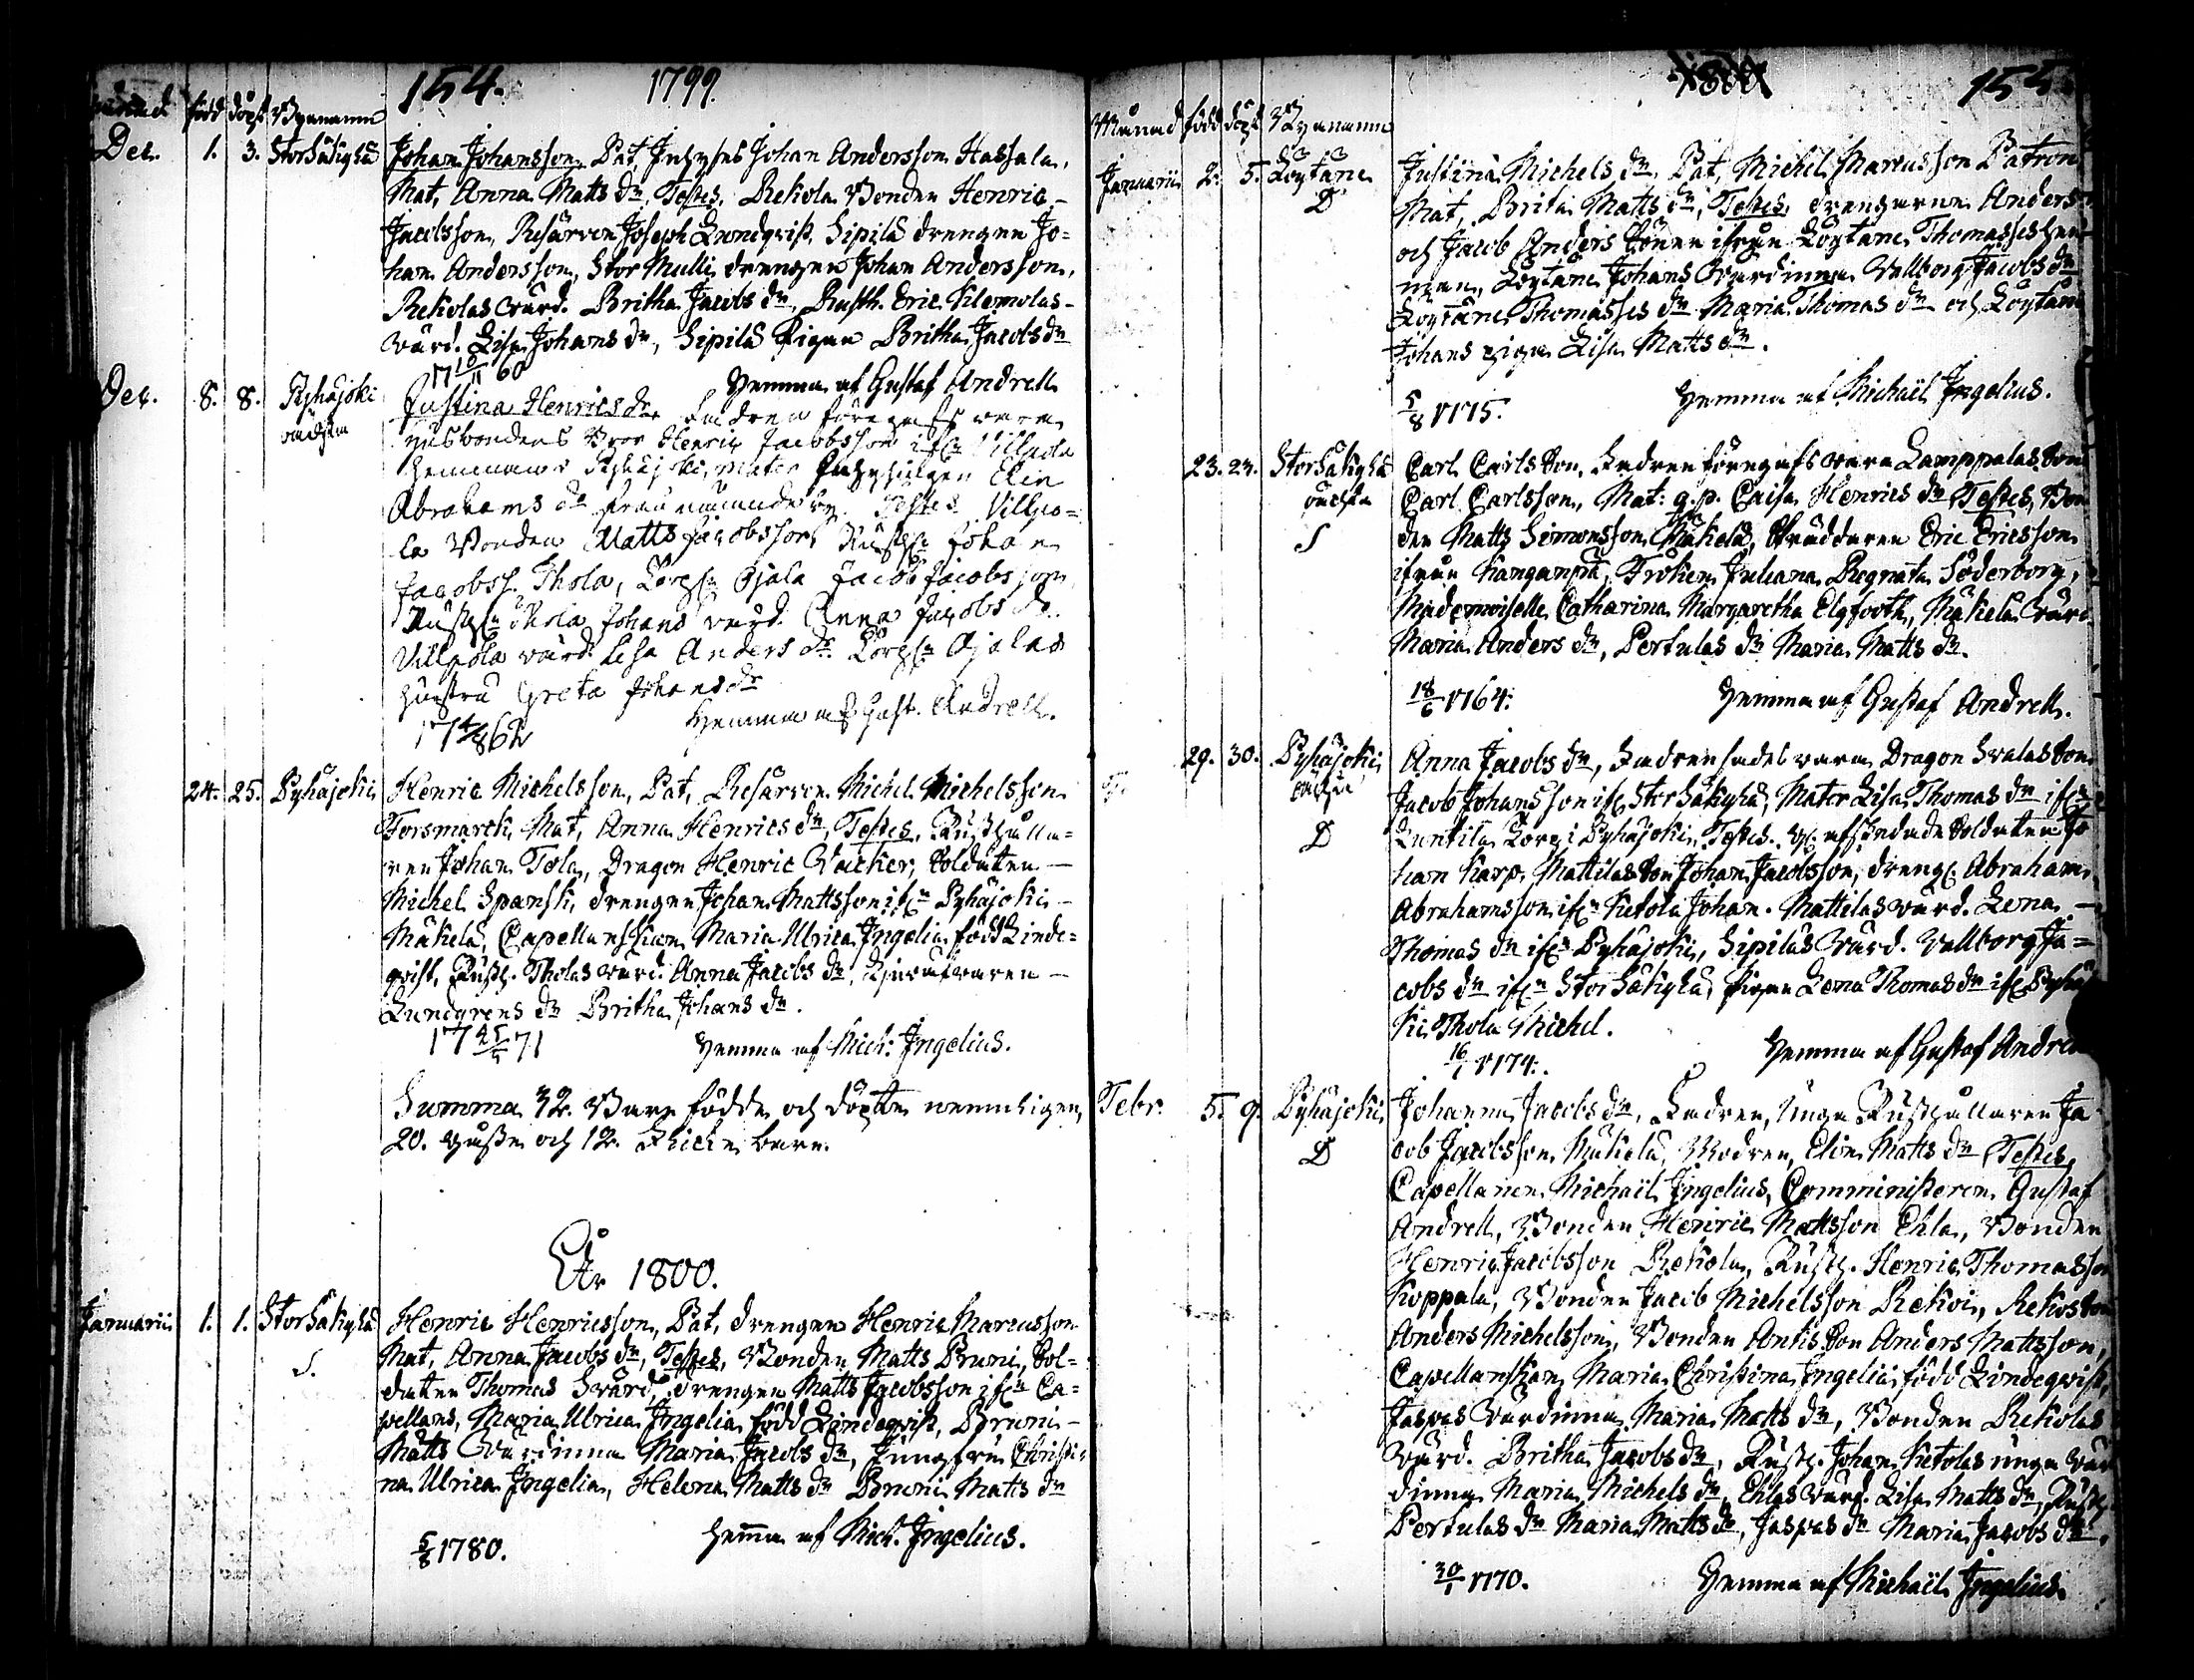 154. 1799.
född döpt Bynamn
Dec. 1. 3. StorSäkylä Johan Johansson, Pat, Inhyses Johan Andersson Hassala,
Mat, Anna Matts dr, Testes, Rekola Bonden Henric
Jacobsson, Reserven Joseph Lundqvist, Sipilä drengen Jo=
han Andersson, Stor Mulli drengen Johan Andersson,
Rekolas Värd. Britha Jacobs dr, Rusth. Eric Klemolas
värd. Lisa Johans dr, Sipilä Pigan Britha Jacobs dr
17 10/11 60 Hemma af Gustaf Andrell
Dec. 8. 8. Pyhäjoki oächta Justina Henrics dr Fadren föregifs vara
husbondens Bror Henric Jacobsson ifrn Villpola
hemman i Pyhäjoki, Mater Inhyspigan Elin
Abrahams dr Testes Villpo=
la Bonden Matts Jacobsson Rusth Johan
Jacobss. Thola, Torpn Ojala Jacob Jacobsson
Rusthn Thola Johans värd. Anna Jacobs dr.
Villpola värd. Lisa Anders dr Torpn Ojalas
hustru Greta Johans dr
17 4/8 62 Hemma af Gust. Andrell.
24. 25. Pyhäjoki Henric Michelsson, Pat, Reserven Michel Michelsson
Forsmarck, Mat, Anna Henrics dr, Testes, Rusthålla=
ren Johan Tola, Dragon Henric Vacker, Soldaten
Michel Spansk, drengen Johan Mattsson ifrn Pyhäjoki
Mäkelä, Capellanskan Maria Ulrica Ingelia född Linde=
qvist, Rusth. Tholas värd. Anna Jacobs dr,
Lundgrens dr Britha Johans dr.
17 25/5 71 Hemma af Mich: Ingelius.
Summa 32. Barn födde och döpte nemmligen,
20. Gosse och 12. Flicke barn.
År 1800.
Januarii 1. 1. StorSäkylä Henric Henricsson, Pat, drengen Henric Marcusson
S. Mat, Anna Jacobs dr, Testes, Bonden Matts Pruni, Sol=
daten Thomas Svärd, drengen Matts Jacobsson ifrn Ca=
pellans, Maria Ulrica Ingelia född Lindeqvist, Pruni
Matts Värdinna Maria Jacobs dr, Jungfru Christi=
na Ulrica Ingelia, Helena Matts dr Pruni Matts dr
5/8 1780. Hemma af Mich. Ingelius.
1800 155.
Månad född döpt Bynamn
Januarii 2. 5. Löytäne Justina Michels dr, Pat, Michel Marcusson Patron
D Mat, Brita Matts dr, Testes, drengarne Anders
och Jacob Anders Söner ifrån Löytäne Thomases hem=
man, Löytäne Johans Värdinna Vallborg Jacobs dr
Löytäne Thomasses dr Maria Thomas dr och Löytäne
Johans pigan Lisa Matts dr.
5/8 1775. Hemma af Michaël Ingelius.
23. 24. StorSäkylä oächta Carl Carls Son, Fadren föregifs vara Lamppalas Son
S Carl Carlsson, Mat: q.p. Caisa Henrics dr Testes, Bon
den Matts Simonsson Mäkelä, Skräddaren Eric Ericsson
ifrån Kanganpä, Fröken Juliana Regnata Söderborg,
Mademoiselle Catharina Margaretha Elgfooth, Mäkelä Värd.
Maria Anders dr, Pertulas dr Maria Matts dr.
18/6 1764. Hemma af Gustaf Andrell.
29. 30. Pyhäjoki oächta Anna Jacobs dr, Fadren sades vara Dragon Svalas Son
D Jacob Johansson ifn StorSäkylä, Mater Lisa Thomas dr ifrn
Luntila Torp i Pyhäjoki, Testes. H. afskedade Soldaten Jo
han Karp, Mattilas Son Johan Jacobsson, dreng. Abraham
Abrahamsson ifrn Ketola Johan. Mattilas värd. Lena
Thomas dr ifrn Pyhäjoki, Sipiläs Värd. Vallborg Ja=
cobs dr ifrn StorSäkylä, Pigan Lena Thomas dr ifn Pyhäjo
ki Thola Michel.
16/1 1774. Hemma af Gustaf Andrell
Febr. 5. 9. Pyhäjoki Johanna Jacobs dr, Fadren, Unga Rusthållaren Ja
D cob Jacobsson Mäkelä, Modren, Elin Matts dr Testes
Capellanen Michaël Ingelius, Comministeren Gustaf
Andrell, Bonden Henric Mattsson Ehla, Bonden
Henric Jacobsson Rekola, Rusth. Henric Thomasson
Koppala, Bonden Jacob Michelsson Rekoi, Rekos Son
Anders Michelsson, Bonden Antis Son Anders Mattsson,
Capellanskan Maria Christina Ingelia född Lindeqvist,
Jaspas Värdinna Maria Matts dr, Bonden Rekolas
värd. Britha Jacobs dr, Rusth. Johan Ketolas unga vär
dinna Maria Michels dr, Ehlas värd. Lisa Matts dr, Rusth.
Pertulas dr Maria Matts dr, Jaspas dr Maria Jacobs dr.
30/1 1770. Hemma af Michaël Ingelius.